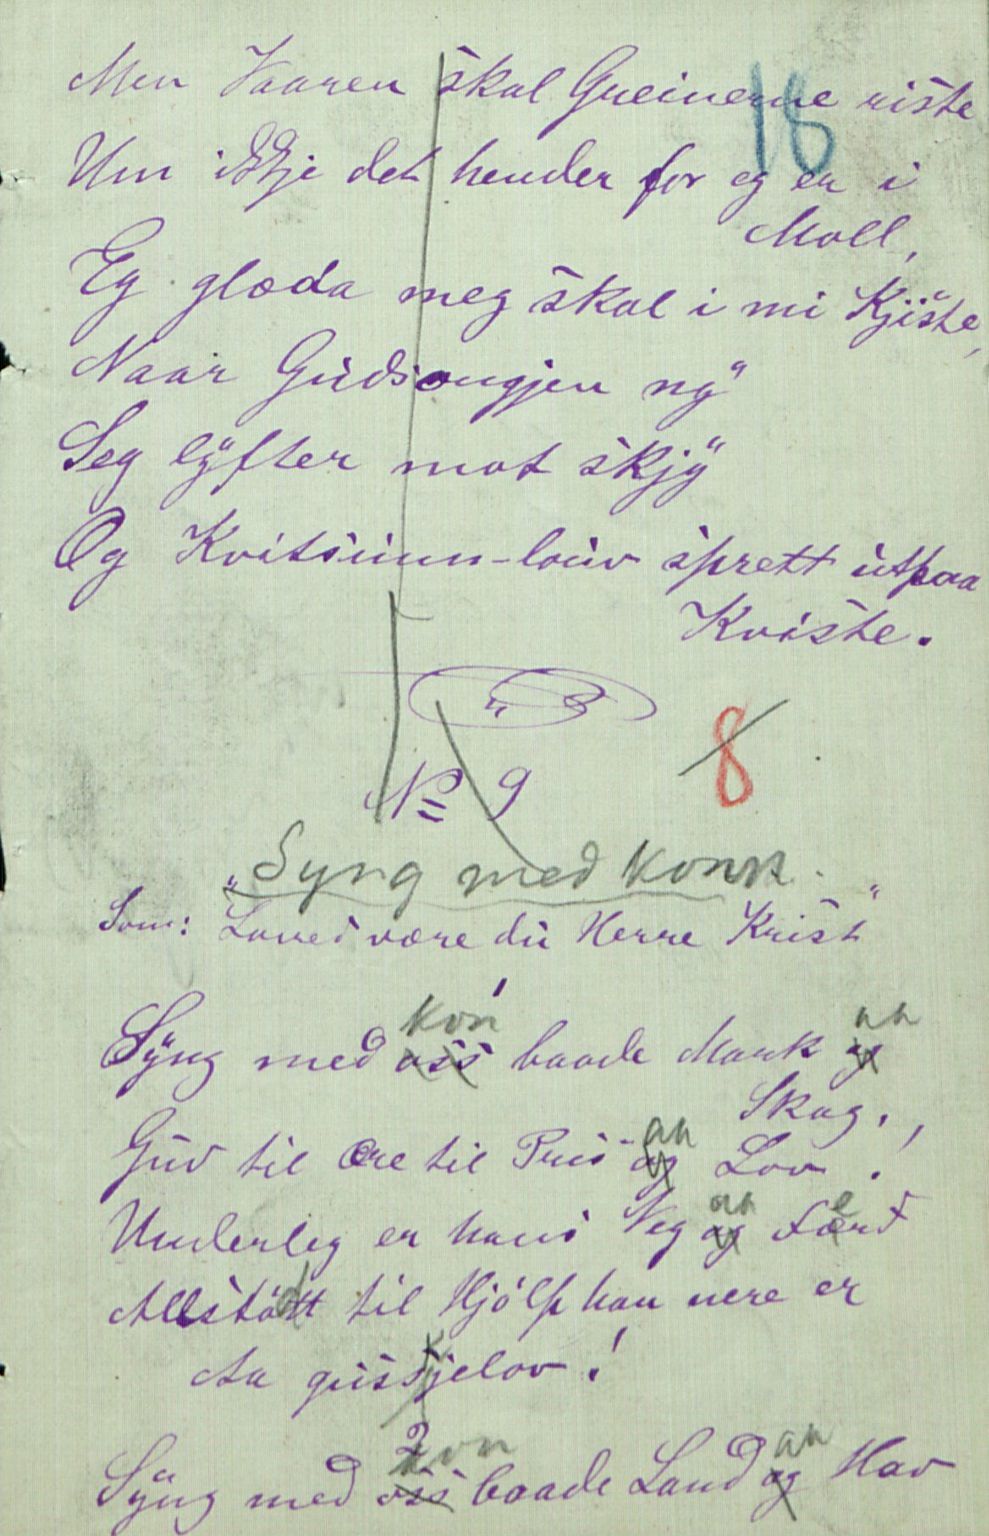 Men Vaaren skal Greinerne riste
18
Um ikkje det hender for eg er i
Moll,
Eg glæda meg skal i mi Kjiste,
Naar Gudsongjen ny
Seg lyfter mot skjy
Og Kvitsunn-lauv sprett utpaa
Kviste.
№ 9
8
Syng med konn.
Som: "Lovet være du Herre Krist"
Syng med oss kon baade Mark og an
Skog,
Guv til ære til Pris og an Lov!
Underleg er hans Veg og an Færd
Allstött til Hjólp han nere er
Aa guskjelov!
2
Syng med oss kon baade Land og an Hav